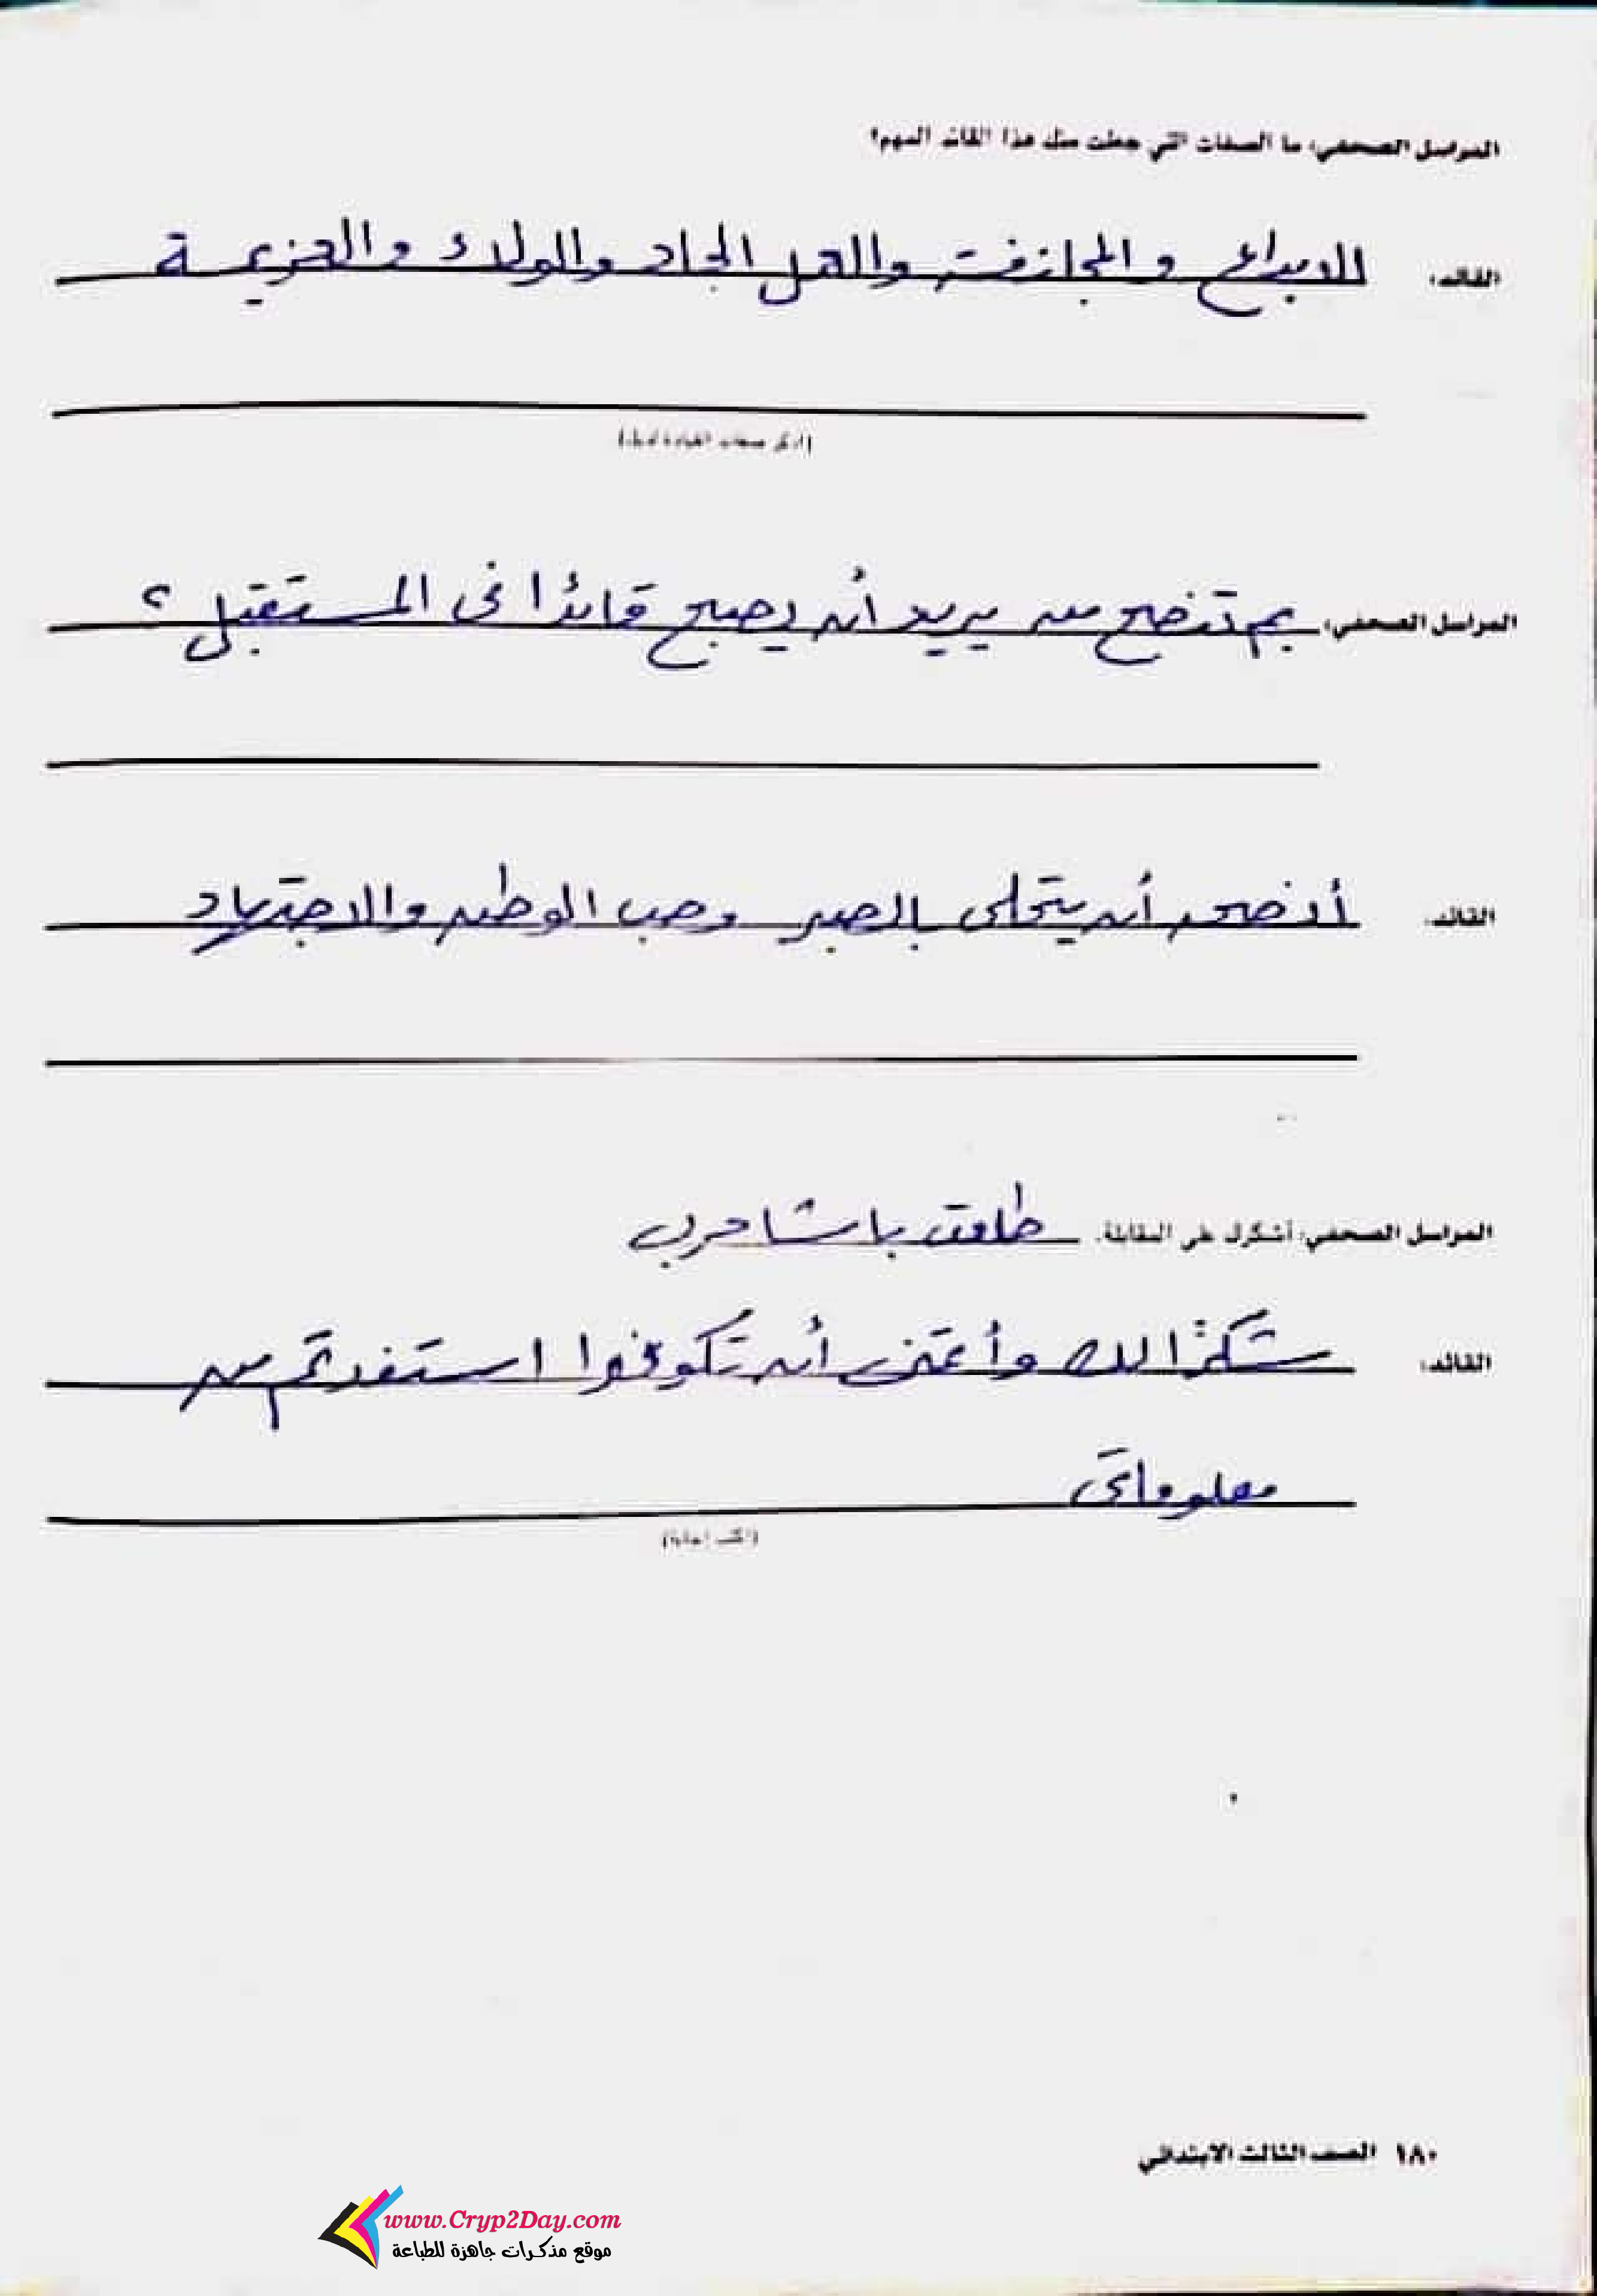 المراسل الصحفي: ما الصفات التي جعلت منك هذا القائد المهم؟
القائد: الابداع والمجازفة والعمل الجاد والولاء والعزيمة
(اذكر صفات القيادة لديك)
المراسل الصحفي: بم تنصح من يريد أن يصبح قائدا فى المستقبل؟
القائد: أنصحه أن يتحلى بالصبر وحب الوطن والاجتهاد
المراسل الصحفي: أشكرك على المقابلة. طلعت باشا حرب
القائد: شكرًا لك وأتمنى أن تكونوا استفدتم من
معلوماتى
(اكتب إجابة)
١٨٠ الصف الثالث الابتدائي
www.Cryp2Day.com
موقع مذكرات جاهزة للطباعة